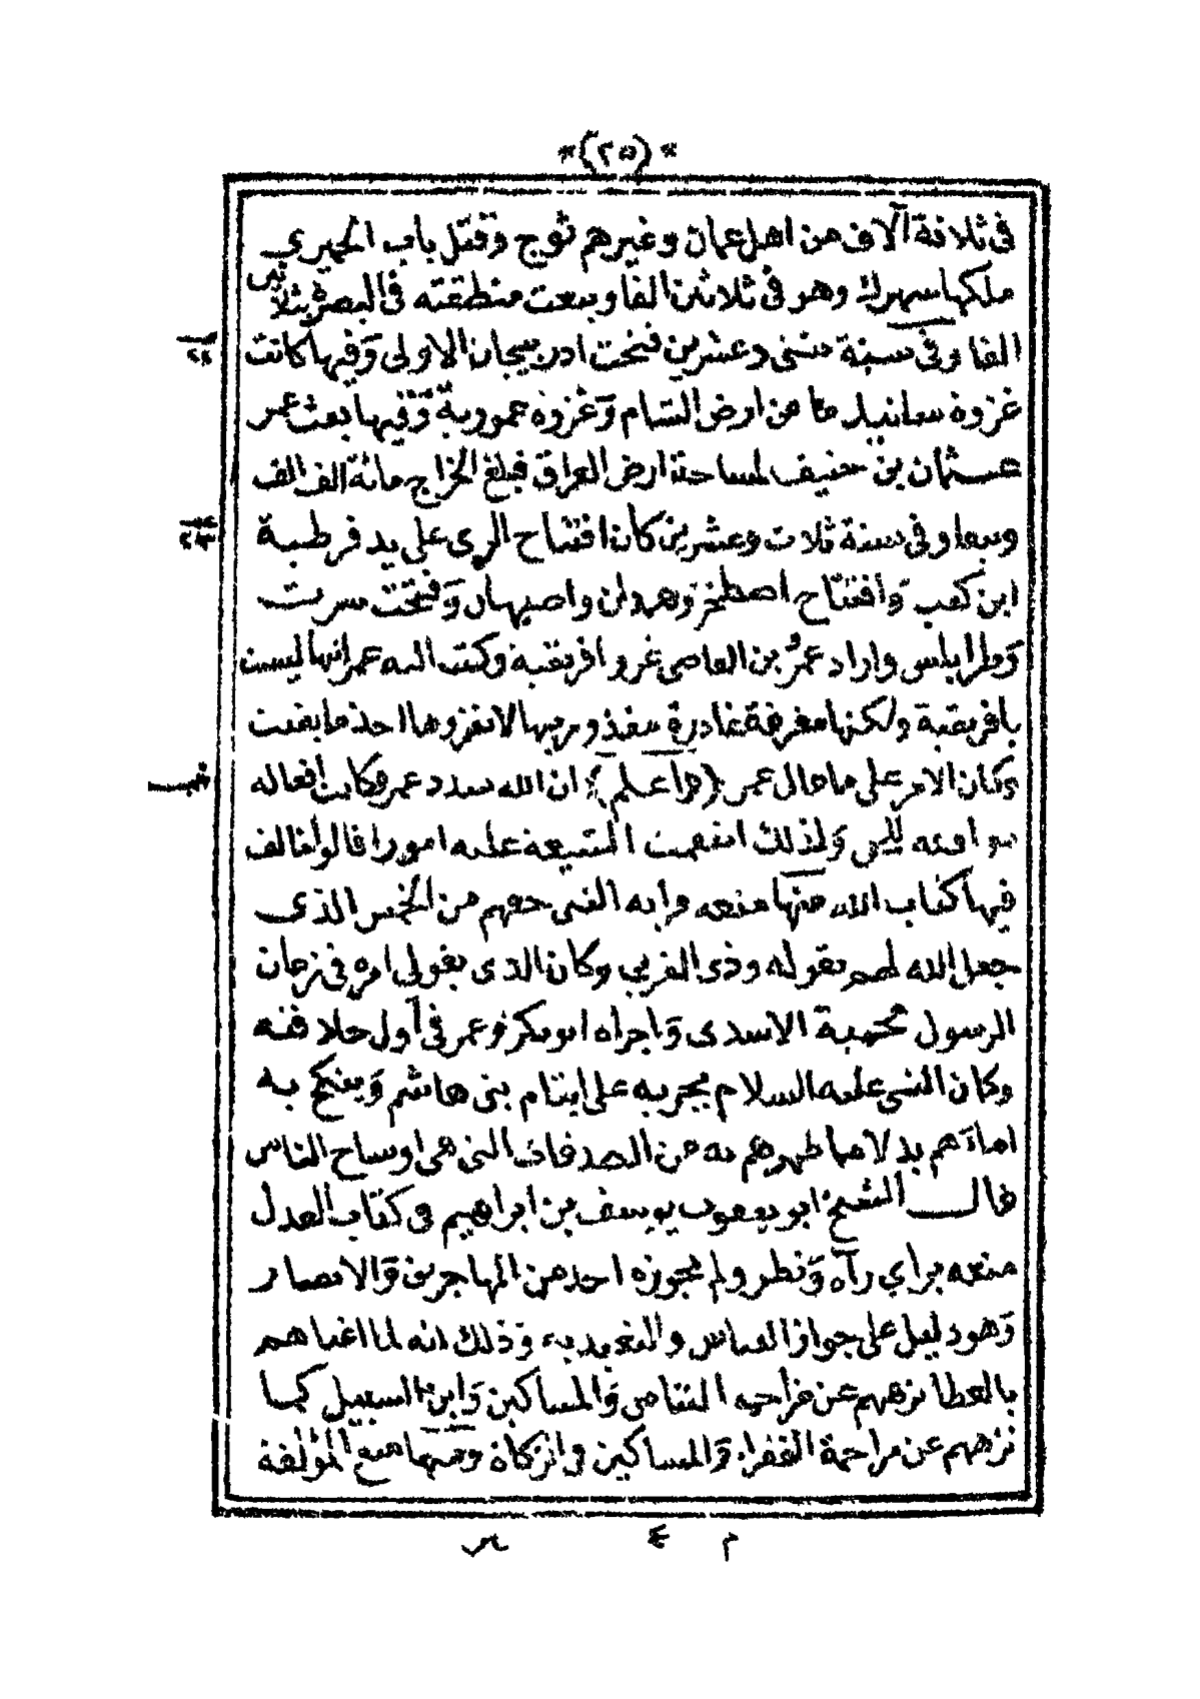 *(٢٥)*
فى ثلاثة آلاف من اهل عمان وغيرهم توج وقتل باب الحميرى
ملكها سهرك وهو فى ثلاثين الفا وبيعت منطقته فى البصرة بثلاثين
الفا وفى سنة ثنتى وعشرين فتحت ادربيجان الاولى وفيها كانت
٢٢ سنة
غزوة من ارض الشام وغزوة عمورية وفيها بعث عمر
عثمان بن حنيف لمساحة ارض العراق فبلغ الخراج مائة الف الف
ونيفا وفى سنة ثلاث وعشرين كان افتتاح الرى على يد قرظبة
٢٣ سنة
ابن كعب وافتتاح اصطخر وهمدان واصبهان وفتحت سرت
وطرابلس واراد عمرو بن العاصى غزو افريقية وكتب اليه عمر انها ليست
بافريقية ولكنها مفرقة غادرة لا يغزوها احد ما بقيت
وكان الامر على ما قال عمر (واعلم) ان الله سدد عمر فكانت افعاله
تنبيه
موافقة للحق ولذلك انقمت الشيعة عليه امورا قالوا خالف
فيها كتاب الله منها منعه قرابة النبى حقهم من الخمس الذى
جعل الله لهم بقوله وذى القربى وكان الذى يتولى امره فى زمان
الرسول محمية الاسدى واجراه ابو بكر وعمر فى أول خلافته
وكان النبى عليه السلام يجريه على ايتام بنى هاشم وينكح به
اماءهم بدلا مما طهرهم به من الصدقات التى هى اوساخ الناس
قال الشيخ ابو يعقوب يوسف بن ابراهيم فى كتاب العدل
منعه براي رآه ونظر ولم يجوزه احد من المهاجرين والانصار
وهو دليل على جواز القياس والتعبد به وذلك انه لما اغناهم
بالعطا نزههم عن مزاحمة اليتامى والمساكين وابن السبيل كما
نزههم عن مزاحمة الفقراء والمساكين فى الزكاة ومنها منع المؤلفة
م ٤ سر